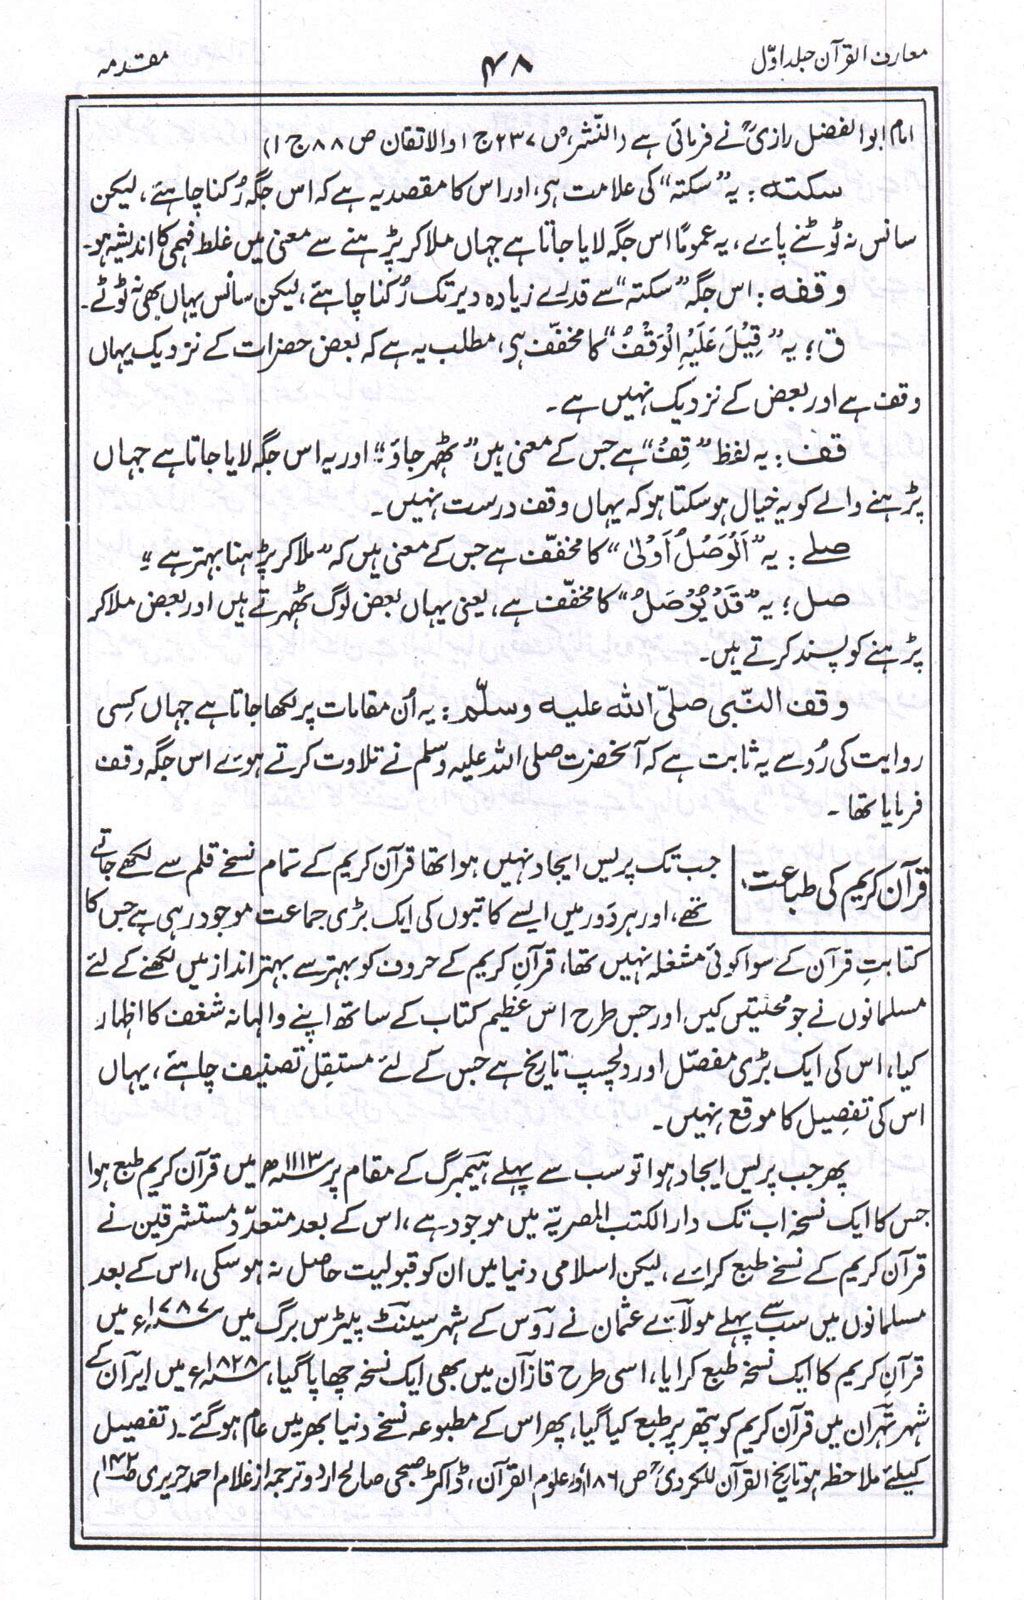 معارف القرآن جلد اوّل
۴۸
مقدمہ
امام ابو الفضل رازیؒ نے فرمائی ہے (النشر، ص ۲۳۷ ج ۱ والاتقان ص ۸۸ ج ۱)
سکتہ: یہ ”سکتہ“ کی علامت ہی، اور اس کا مقصد یہ ہے کہ اس جگہ رُکنا چاہئے، لیکن
سانس نہ ٹوٹنے پائے، یہ عمومًا اس جگہ لایا جاتا ہے جہاں ملا کر پڑہنے سے معنی میں غلط فہمی کا اندیشہ ہو۔
وقفہ: اس جگہ ”سکتہ“ سے قدرے زیادہ دیر تک رُکنا چاہئے، لیکن سانس یہاں بھی نہ ٹوٹے۔
ق؛ یہ ”قِیْلَ عَلَیْہِ الْوَقْفُ“ کا مخفّف ہی، مطلب یہ ہے کہ بعض حضرات کے نزدیک یہاں
وقف ہے اور بعض کے نزدیک نہیں ہے۔
قف: یہ لفظ ”قِفْ“ ہے جس کے معنی ہیں ”ٹھہر جاؤ“؛ اور یہ اس جگہ لایا جاتا ہے جہاں
پڑہنے والے کو یہ خیال ہو سکتا ہو کہ یہاں وقف درست نہیں۔
صلے: یہ ”اَلْوَصْلُ اَوْلیٰ“ کا مخفّف ہے جس کے معنی ہیں کہ ”ملا کر پڑہنا بہتر ہے“؛
صل؛ یہ ”قَدْ یُوْصَلُ“ کا مخفّف ہے، یعنی یہاں بعض لوگ ٹھہرتے ہیں اور بعض ملا کر
پڑہنے کو پسند کرتے ہیں۔
وقف النّبی صلّی اللہ علیہ وسلّم: یہ اُن مقامات پر لکھا جاتا ہے جہاں کِسی
روایت کی رُو سے یہ ثابت ہے کہ آنحضرت صلی اللہ علیہ وسلم نے تلاوت کرتے ہوئے اس جگہ وقف
فرمایا تھا۔
قرآن کریم کی طباعت؛ جب تک پریس ایجاد نہیں ہوا تھا قرآن کریم کے تمام نسخے قلم سے لکھے جاتے
تھے، اور ہر دَور میں ایسے کاتبوں کی ایک بڑی جماعت موجود رہی ہے جس کا
کتابتِ قرآن کے سوا کوئی مشغلہ نہیں تھا، قرآنِ کریم کے حروف کو بہتر سے بہتر انداز میں لکھنے کے لئے
مسلمانوں نے جو محنتیں کیں اور جس طرح اس عظیم کتاب کے ساتھ اپنے والہانہ شغف کا اظہار
کیا، اس کی ایک بڑی مفصّل اور دلچسپ تاریخ ہے جس کے لئے مستقِل تصنیف چاہئے، یہاں
اس کی تفصِیل کا موقع نہیں۔
پھر جب پریس ایجاد ہوا تو سب سے پہلے ہیمبرگ کے مقام پر ۱۱۱۳ھ میں قرآن کریم طبع ہوا
جس کا ایک نسخہ اب تک دار الکتب المصریّہ میں موجود ہے، اس کے بعد متعدّد مستشرقین نے
قرآن کریم کے نسخے طبع کرائے، لیکن اسلامی دنیا میں ان کو قبولیت حاصل نہ ہو سکی، اس کے بعد
مسلمانوں میں سب سے پہلے مولائے عثمان نے روس کے شہر سینٹ پیٹرس برگ میں ۱۷۸۷ء میں
قرآنِ کریم کا ایک نسخہ طبع کرایا، اسی طرح قازان میں بھی ایک نسخہ چھاپا گیا، ۱۸۲۸ء میں ایران کے
شہر تہران میں قرآن کریم کو پتھر پر طبع کیا گیا، پھر اس کے مطبوعہ نسخے دنیا بھر میں عام ہو گئے۔ (تفصیل
کیلئے ملاحظہ ہو تاریخ القرآن للکردیؒ ص ۱۸۶ اور علوم القرآن، ڈاکٹر صبحی صالح اردو ترجمہ از غلام احمد حریری ص ۱۴۲)